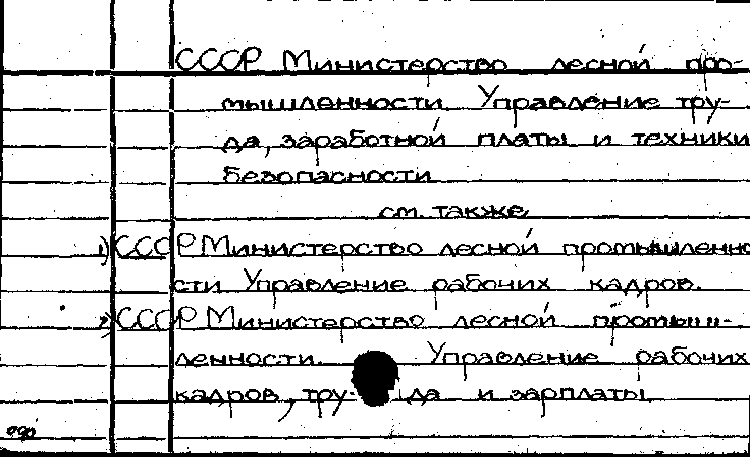 СССР Министерство лесной про-
мышленности. Управление тру-
да, заработной платы и техники
безопасности
см. также
1) СССР Министерство лесной промышленно
сти Управление рабочих кадров.
2) СССР Министерство лесной промыш-
ленности. Управление рабочих
кадров, тру-да и зарплаты.